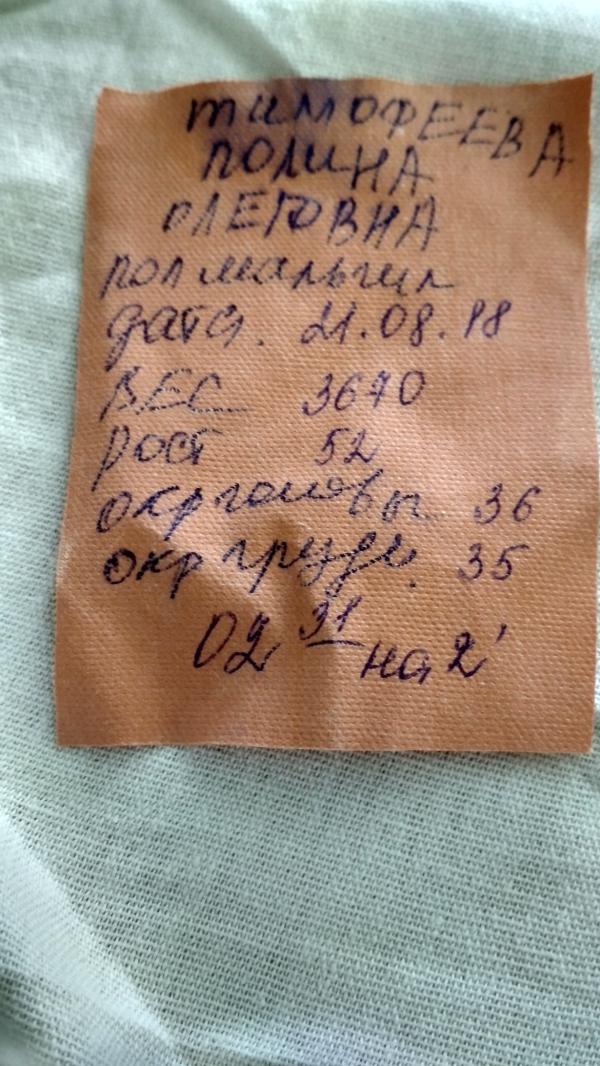 ТИМОФЕЕВА
ПОЛИНА
ОЛЕГОВНА
пол мальчик
дата. 21.08.18
ВЕС 3670
рост 52
окр головы 36
окр груди. 35
02 31 на 2'